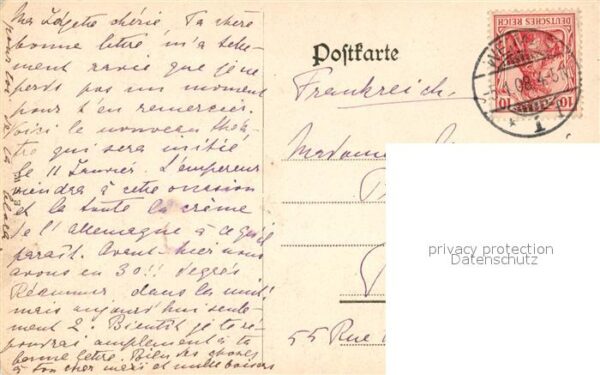 Ma chérie. Ta chère
bonne lettre m'a telle-
ment ravie que je ne
perds pas un moment
pour t'en remercier.
Voici le nouveau thé-
tre qui sera initié
le 11 Janvier. L'empereur
viendra à cette occasion
et la toute la crème
de l'Allemagne à ce qu'il
paraît. Avant-hier nous
avons eu 30!! degrés
Réaumur dans la nuit
mais aujourd'hui seule-
ment 2. Bientôt je te ré-
pondrai amplement à ta
bonne lettre. Bien des choses
à ton cher mari et mille baisers
pour toi de ta
Postkarte
Frankreich.
Madame
55 Rue
DEUTSCHES REICH
10 10
08.4-5N
1
privacy protection
Datenschutz